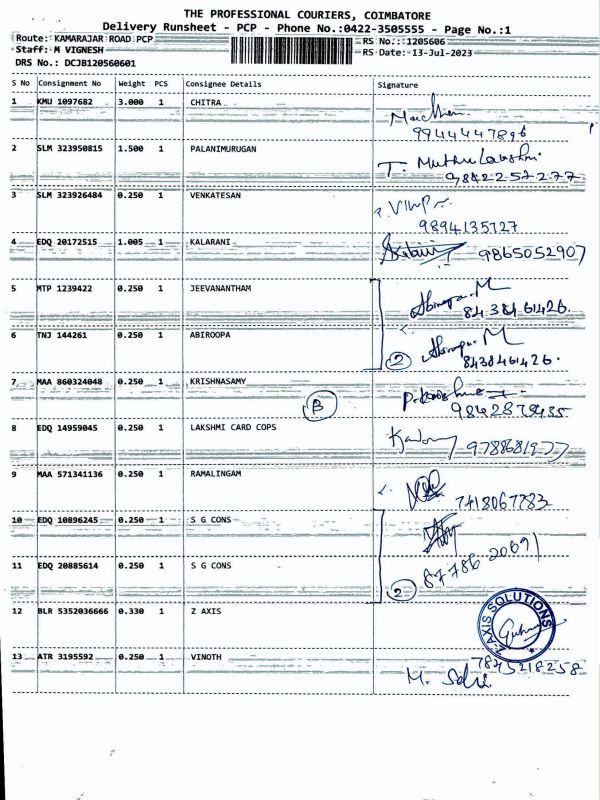 THE PROFESSIONAL COURIERS, COIMBATORE
Delivery Runsheet - PCP - Phone No.:0422-3505555 - Page No.:1
Route: KAMARAJAR ROAD PCP
RS No.: 1205606
Staff: M VIGNESH
RS Date: 13-Jul-2023
DRS No.: DCJB120560601
S No Consignment No Weight PCS Consignee Details Signature
1 KMU 1097682 3.000 1 CHITRA
9944447896
2 SLM 323950815 1.500 1 PALANIMURUGAN T. Muthu Lakshmi
9842252277
3 SLM 323926484 0.250 1 VENKATESAN
9894135727
4 EDQ 20172515 1.005 1 KALARANI 9865052907
5 MTP 1239422 0.250 1 JEEVANANTHAM
8438461426.
6 TNJ 144261 0.250 1 ABIROOPA
2 8438461426.
7 MAA 860324048 0.250 1 KRISHNASAMY
B 9842878435
8 EDQ 14959045 0.250 1 LAKSHMI CARD COPS 9788681977
9 MAA 571341136 0.250 1 RAMALINGAM 7418067783
10 EDQ 10896245 0.250 1 S G CONS
11 EDQ 20885614 0.250 1 S G CONS 87786 20691
2
12 BLR 5352036666 0.330 1 Z AXIS
Z-AXIS SOLUTIONS
13 ATR 3195592 0.250 1 VINOTH 7845218258
M. Selvi